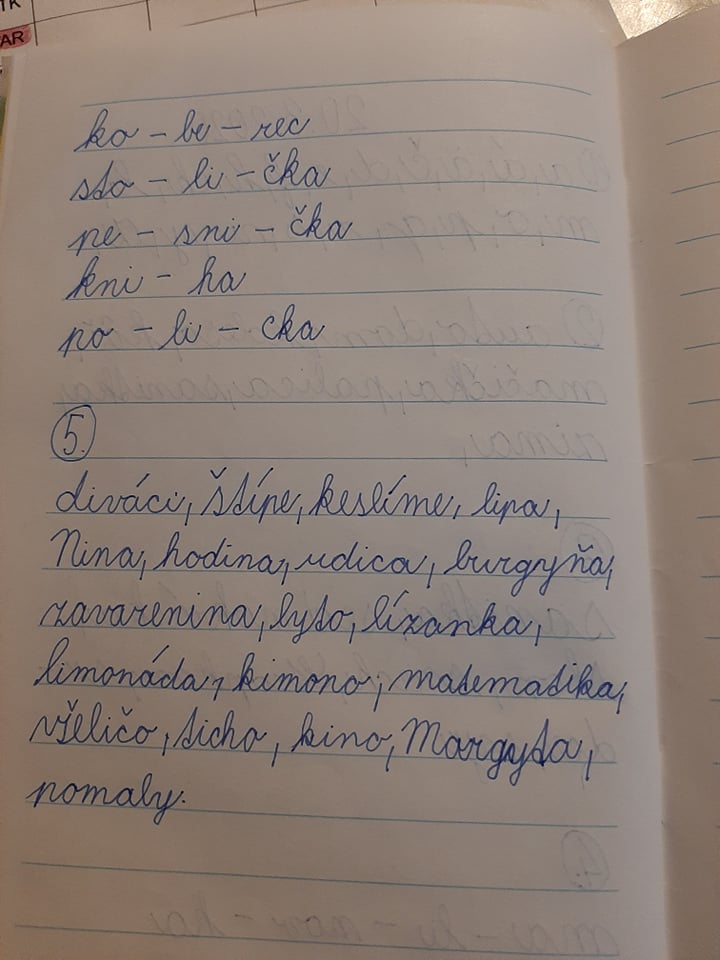 TK
AR
ko - be - rec
sto - li - čka
pe - sni - čka
kni - ha
po - li - cka
5.
diváci, štípe, keslíme, lipa,
Nina, hodina, udica, burgyňa,
zavarenina, lyto, lízanka,
limonáda, kimono, matematika,
všeličo, ticho, kino, Margyta,
pomaly.